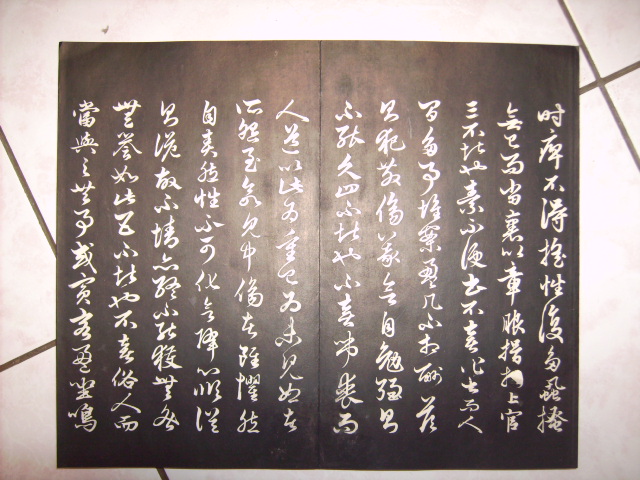 時痺不得搖性復多虱搔
無已而當裹以章服揖拜上官
三不堪也素不便書不喜作書而人
間多事堆案盈几不相酬答
則犯教傷義欲自勉強則
不能久四不堪也不喜弔喪而
人道以此為重已為未見恕者
所怨至欲見中傷者雖懼然
自責然性不可化欲降心順俗
則詭故不情亦終不能獲無咎
無譽如此五不堪也不喜俗人而
當與之共事或賓客盈坐鳴